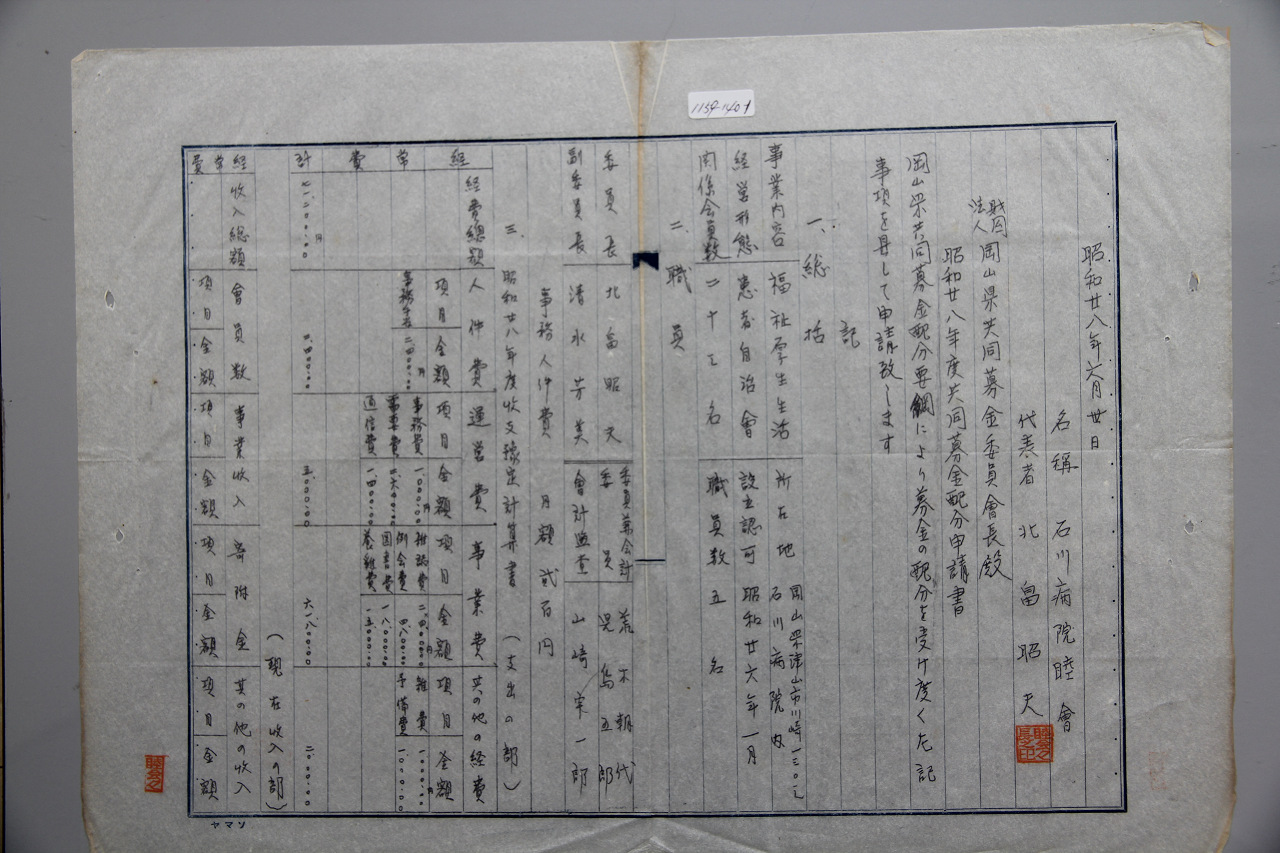 1159-1401
昭和廿八年六月廿日
名称 石川病院睦會
代表者 北畠昭夫
財団法人 岡山県共同募金委員會長殿
昭和廿八年度共同募金配分申請書
岡山県共同募金配分要綱により募金の配分を受け度く左記
事項を具して申請致します
記
一、総括
事業内容 福祉厚生生活 所在地 岡山県津山市川崎一三〇二 石川病院内
経営形態 患者自治會 設立認可 昭和廿六年一月
関係会員数 二十三名 職員数 五名
二、職員
委員長 北畠昭夫 委員兼会計 荒木朝代
委員 児島五郎
副委員長 清水芳美 會計監査 山崎宗一郎
事務人件費 月額弐百円
三、昭和廿八年度收支予定計算書 (支出の部)
経常費
経費總額 人件費 運営費 事業費 其の他の経費
項目 金額 項目 金額 項目 金額 項目 金額
事務手当 二四〇〇.〇〇円
事務費 一.〇〇〇.〇〇円
通信費 一.四〇〇.〇〇
例会費 四.八〇〇.〇〇
図書費 一八.〇〇〇.〇〇
雑費 一.〇〇〇.〇〇円
予備費 一.〇〇〇.〇〇
計 二.四〇〇.〇〇 五.〇〇〇.〇〇 六一.八〇〇.〇〇 二.〇〇〇.〇〇
(現在収入の部)
経常費
收入総額 會員数 事業收入 寄附金 其の他の収入
項目 金額 項目 金額 項目 金額 項目 金額
ヤマソ